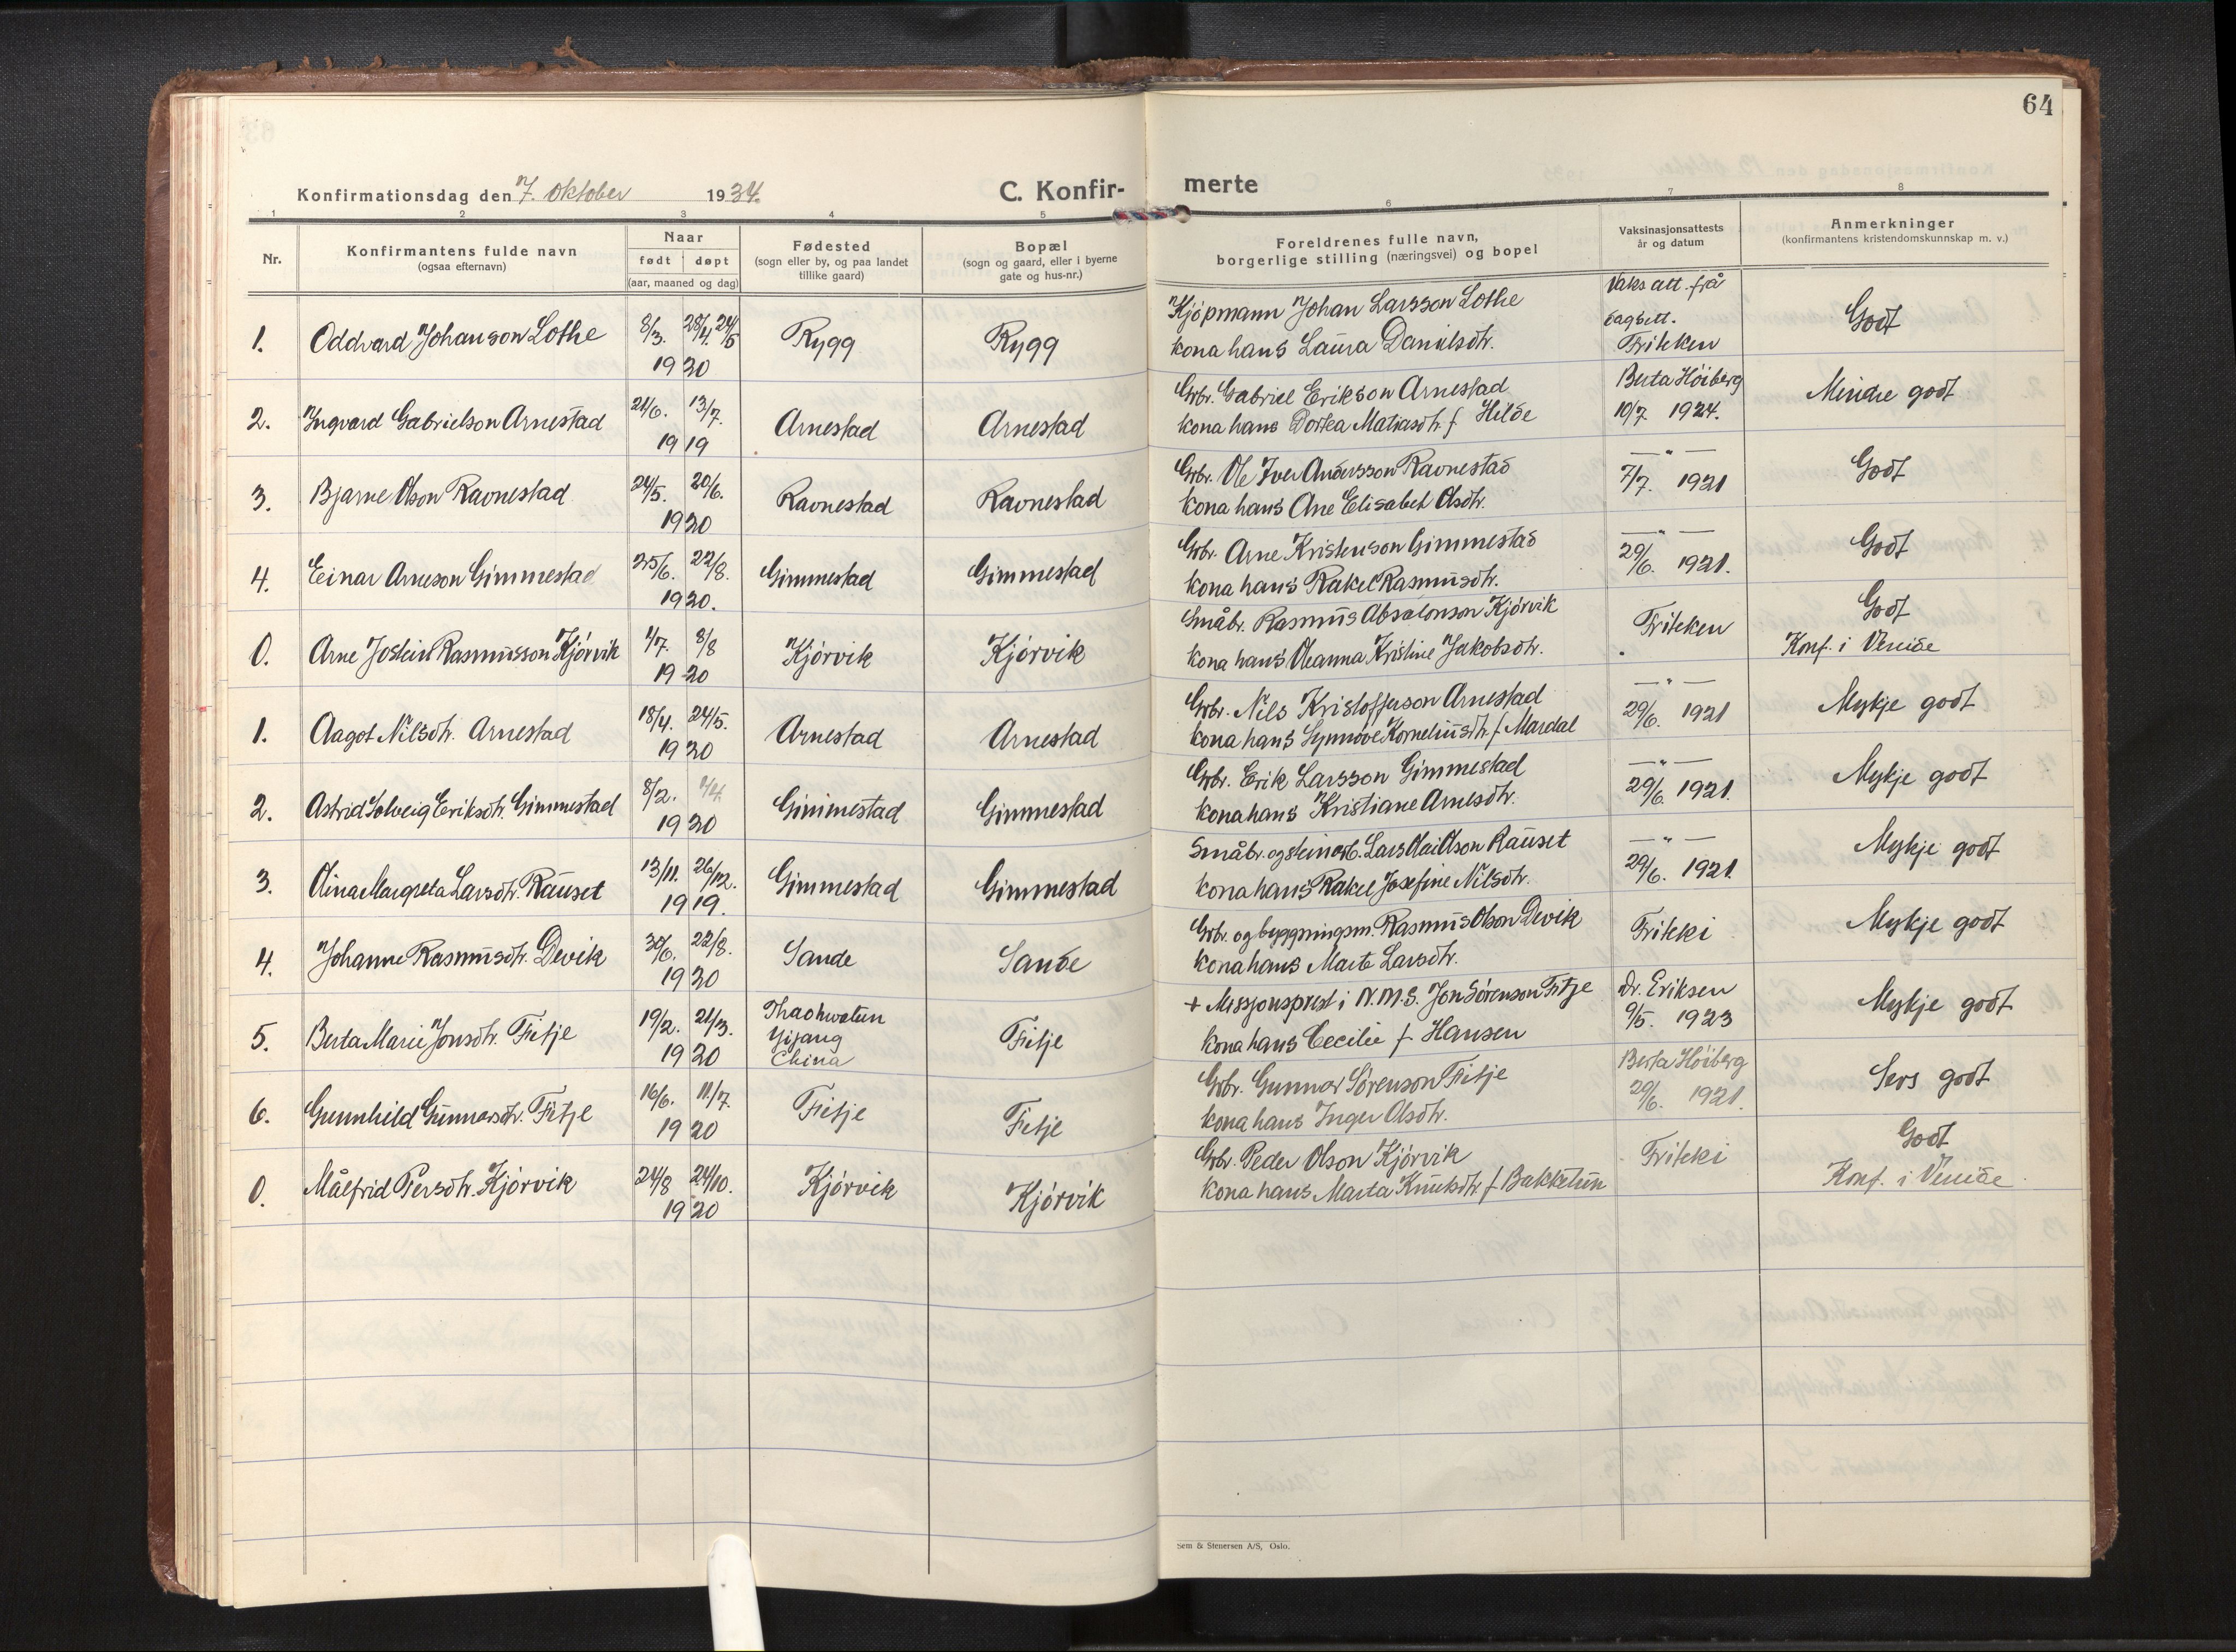 64
Konfirmationsdag den 7. oktober 1934.
C. Konfir-
merte
1 2 3 4 5 6 7 8
Nr.
Konfirmantens fulde navn
(ogsaa efternavn)
Naar
født døpt
(aar, maaned og dag)
Fødested
(sogn eller by, og paa landet
tillike gaard)
Bopæl
(sogn og gaard, eller i byerne
gate og hus-nr.)
Foreldrenes fulle navn,
borgerlige stilling (næringsvei) og bopel
Vaksinasjonsattests
år og datum
Anmerkninger
(konfirmantens kristendomskunnskap m. v.)
1. Oddvard Johanson Lothe 8/3. 28/4. 24/5 1920 Rygg Rygg
Kjøpmann Johan Larsson Lothe
kona hans Laura Danielsdtr.
Vaks att. frå
Friteken
Godt
2. Ingvard Gabrielson Arnestad 21/6. 13/7. 1919 Arnestad Arnestad
Gbr. Gabriel Erikson Arnestad
kona hans Dortea Matiasdtr. f. Hilde
Berta Høiberg
10/7. 1924.
Mindre godt
3. Bjarne Olson Ravnestad 24/5. 20/6. 1920 Ravnestad Ravnestad
Gbr. Ole Iver Andersson Ravnestad
kona hans Ane Elisabet Olsdtr.
— " —
7/7. 1921
Godt
4. Einar Arneson Gimmestad 25/6. 22/8. 1920. Gimmestad Gimmestad
Gbr. Arne Kristenson Gimmestad
kona hans Rakel Rasmusdtr.
— " —
29/6. 1921.
Godt
0. Arne Jostein Rasmusson Kjørvik 1/7. 8/8 1920 Kjørvik Kjørvik
Småbr. Rasmus Absalonson Kjørvik
kona hans Oleanna Kristine Jakobsdtr.
Friteken
Godt
Konf. i Vereide
1. Aagot Nilsdtr. Arnestad 18/4. 24/5. 1920 Arnestad Arnestad
Gbr. Nils Kristofferson Arnestad
kona hans Synnøve Korneliusdtr. f. Mardal
— " —
29/6. 1921
Mykje godt
2. Astrid Solveig Eriksdtr. Gimmestad 8/2. 4/4 1920 Gimmestad Gimmestad
Gbr. Erik Larsson Gimmestad
kona hans Kristiane Arnesdtr.
— " —
29/6. 1921.
Mykje godt
3. Olina Margreta Larsdtr. Rauset 13/11. 26/12. 1919. Gimmestad Gimmestad
Småbr. og steinarb. Lars Olai Olson Rauset
kona hans Rakel Josefine Nilsdtr.
— " —
29/6. 1921.
Mykje godt
4. Johanne Rasmusdtr. Devik 30/6. 22/8. 1920 Sande Sande
Gbr. og byggningsm. Rasmus Olson Devik
kona hans Marte Larsdtr.
Friteki
Mykje godt
5. Berta Marie Jonsdtr. Fitje 19/2. 21/3. 1920 Thaohwatun
Yiyang
China
Fitje
+ Missjonsprest i N.M.S. Jon Sørenson Fitje
kona hans Cecilie f. Hansen
Dr. Eriksen
9/5. 1923
Mykje godt
6. Gunnhild Gunnarsdtr. Fitje 16/6. 11/7. 1920 Fitje Fitje
Gbr. Gunnar Sørenson Fitje
kona hans Inger Olsdtr.
Berta Høiberg
29/6. 1921.
Sers godt
0. Målfrid Persdtr. Kjørvik 24/8 24/10. 1920 Kjørvik Kjørvik
Gbr. Peder Olson Kjørvik
kona hans Marta Knutsdtr. f. Bakketun
Friteki
Godt
Konf. i Vereide
Sem & Stenersen A/S, Oslo.